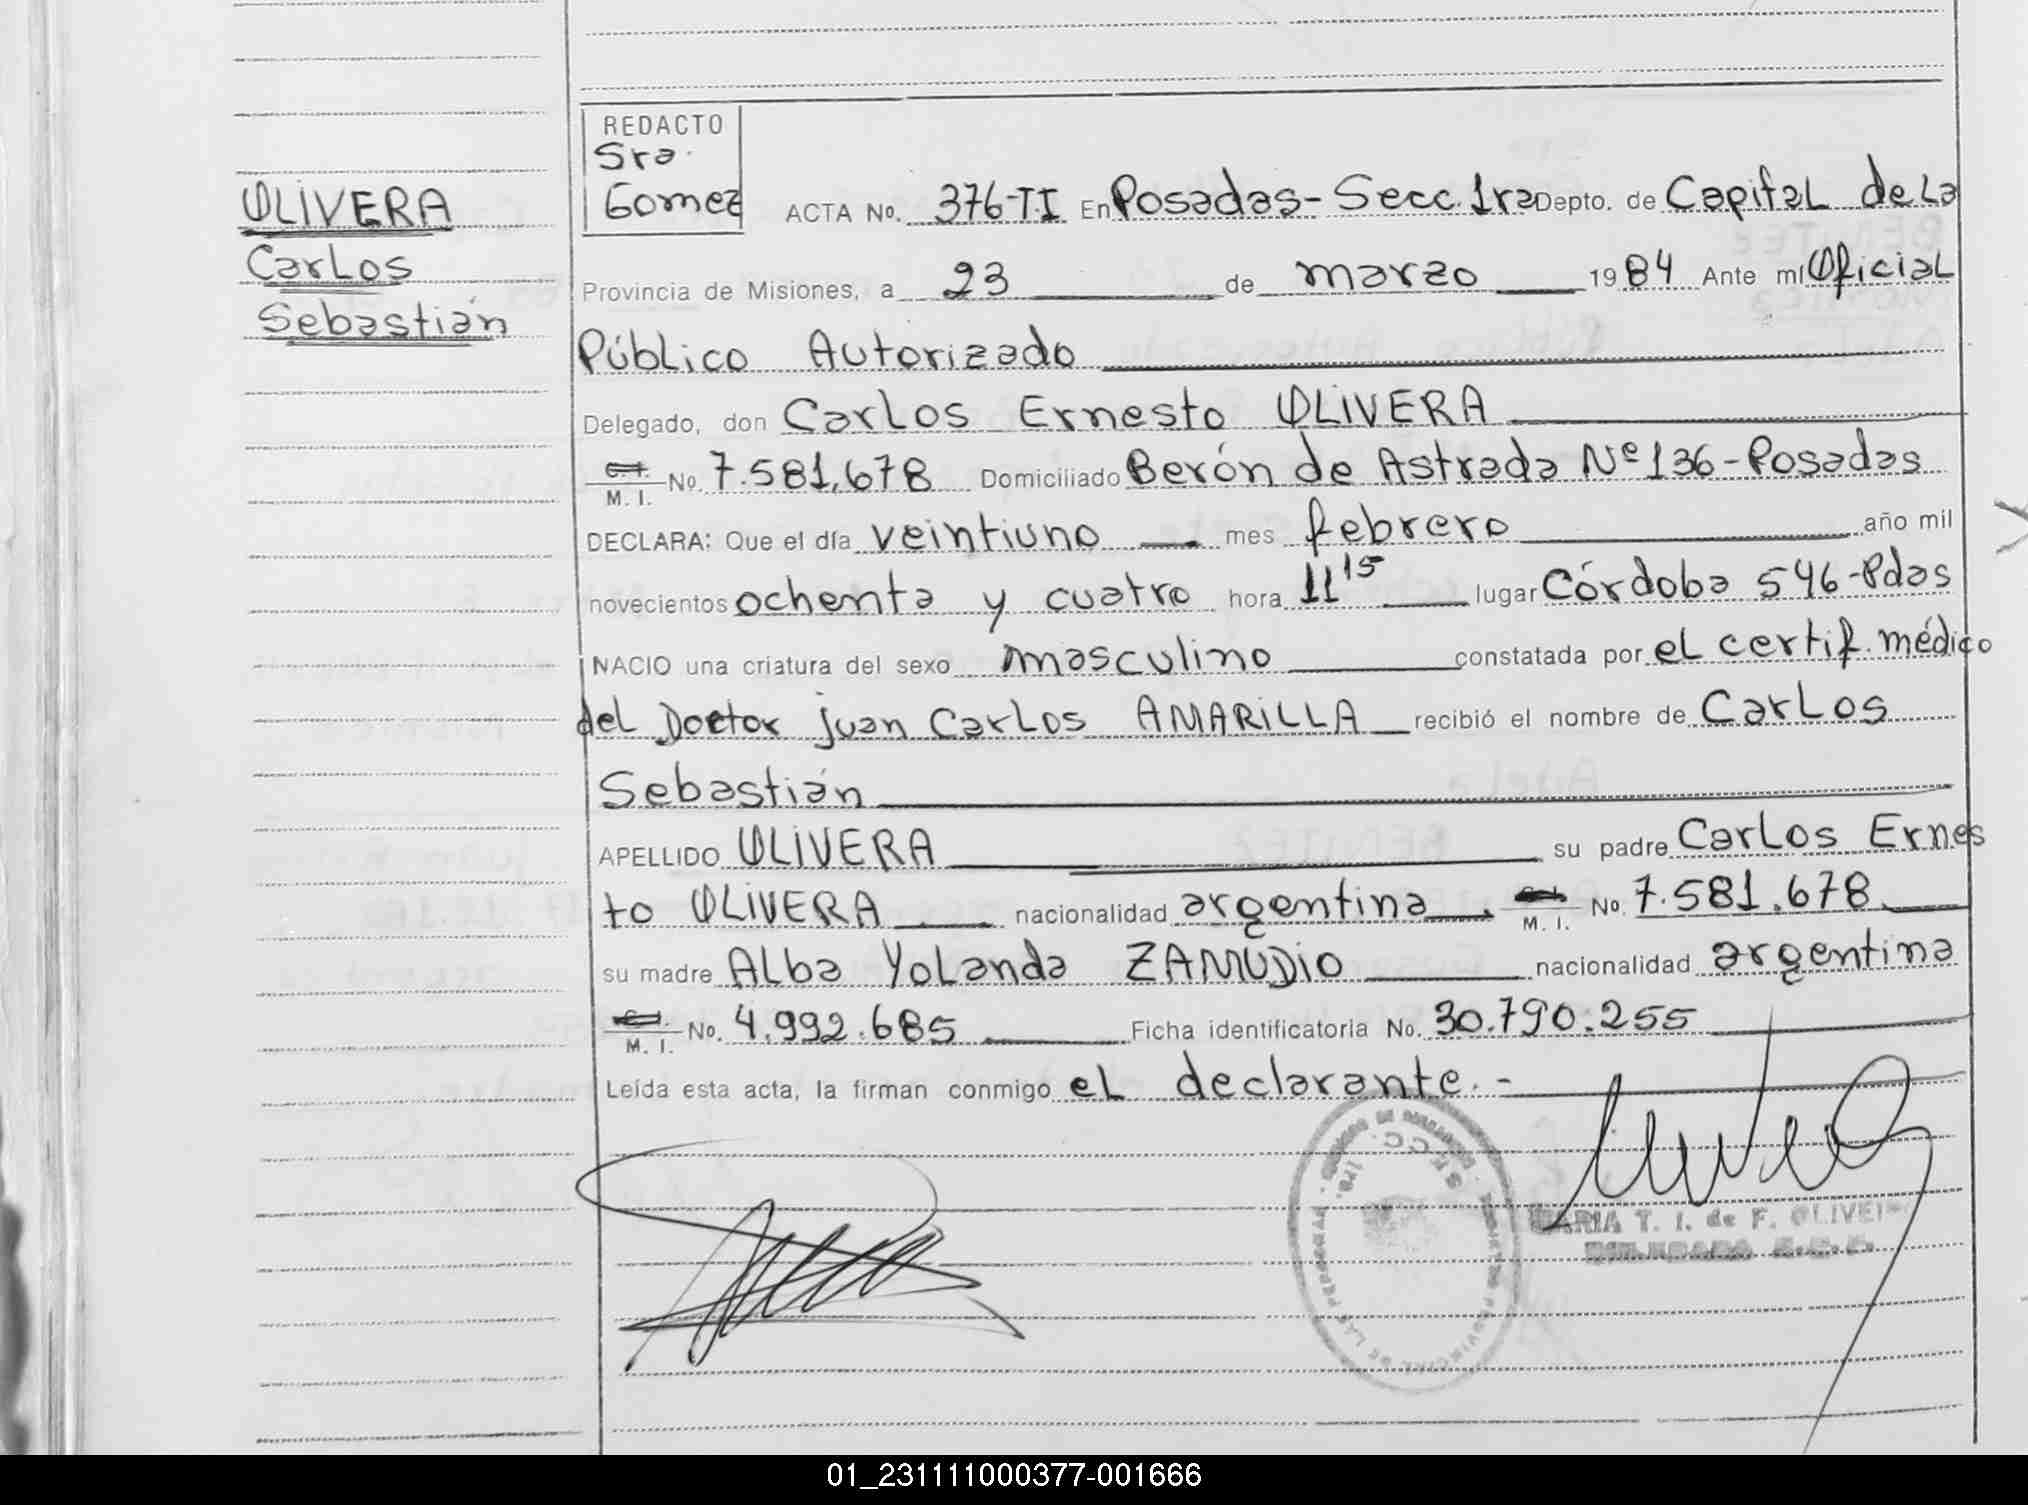 OLIVERA
Carlos
Sebastián
REDACTO
Sra.
Gomez
ACTA No. 376-TI En Posadas - Secc. 1ra Depto. de Capital de la
Provincia de Misiones, a 23 de marzo 1984 Ante mí Oficial
Público Autorizado
Delegado, don Carlos Ernesto OLIVERA
C. I.
M. I. No. 7.581.678 Domiciliado Berón de Astrada Nº 136 - Posadas
DECLARA: Que el día veintiuno mes febrero año mil
novecientos ochenta y cuatro hora 11 15 lugar Córdoba 546 - Pdas
NACIO una criatura del sexo masculino constatada por el certif. médico
del Doctor juan Carlos AMARILLA recibió el nombre de Carlos
Sebastián
APELLIDO OLIVERA su padre Carlos Ernes
to OLIVERA nacionalidad argentina C. I. M. I. No. 7.581.678
su madre Alba Yolanda ZAMUDIO nacionalidad argentina
C. I.
M. I. No. 4.992.685 Ficha identificatoria No. 30.790.255
Leída esta acta, la firman conmigo el declarante. -
MARIA T. I. de F. OLIVEI
DELEGADA
01_231111000377-001666